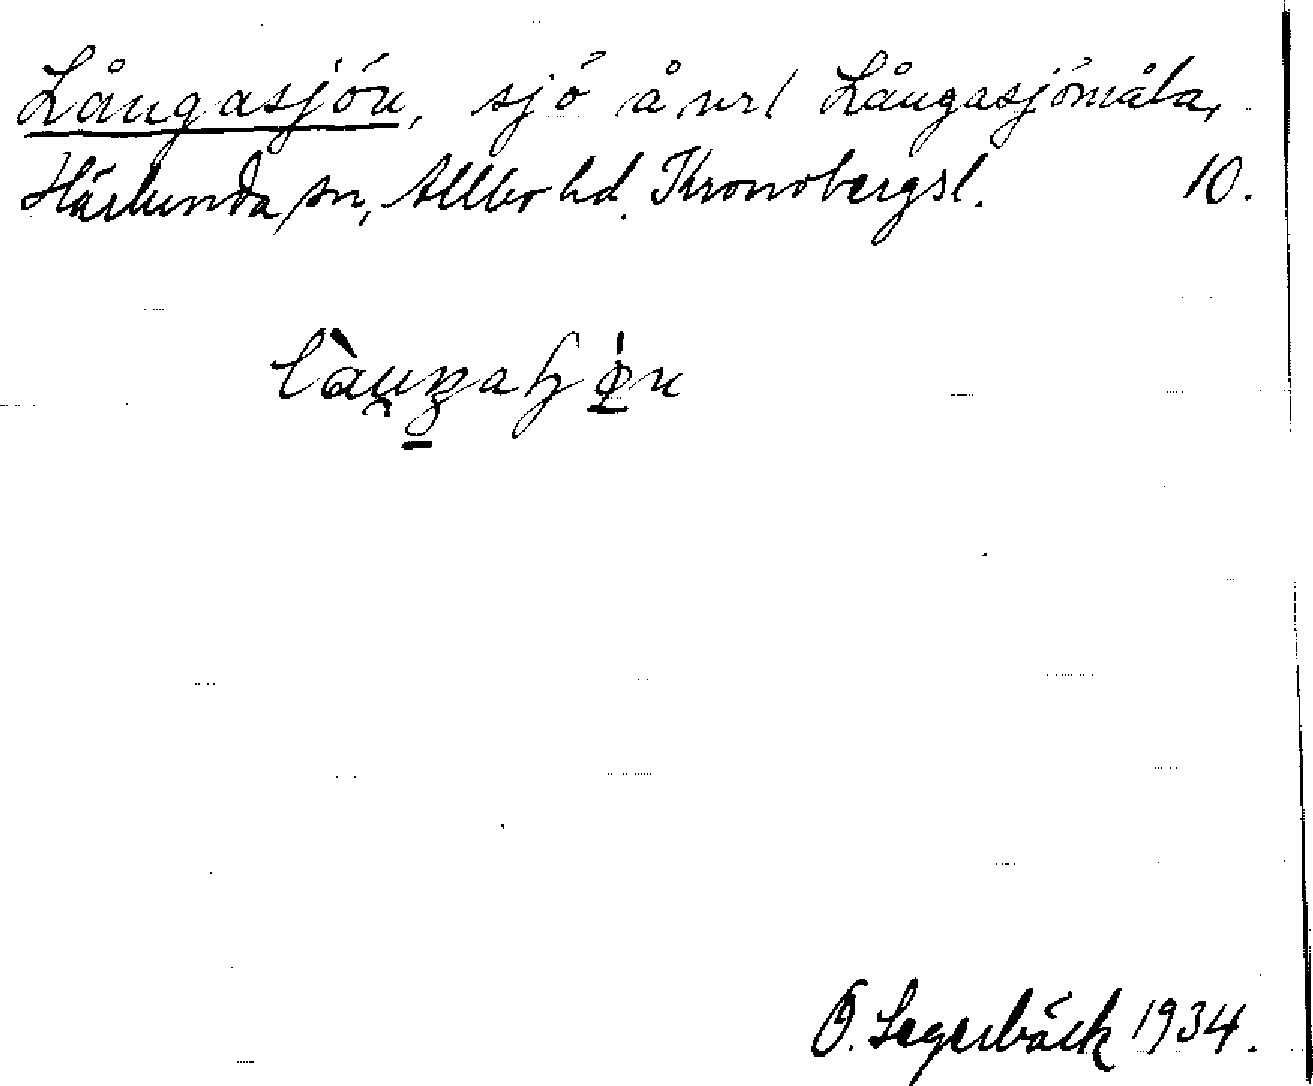 Långasjön, sjö å nr 1 Långasjömåla,
Härlunda sn, Allbo hd. Kronobergsl. 10.
O. Segerbäck 1934.